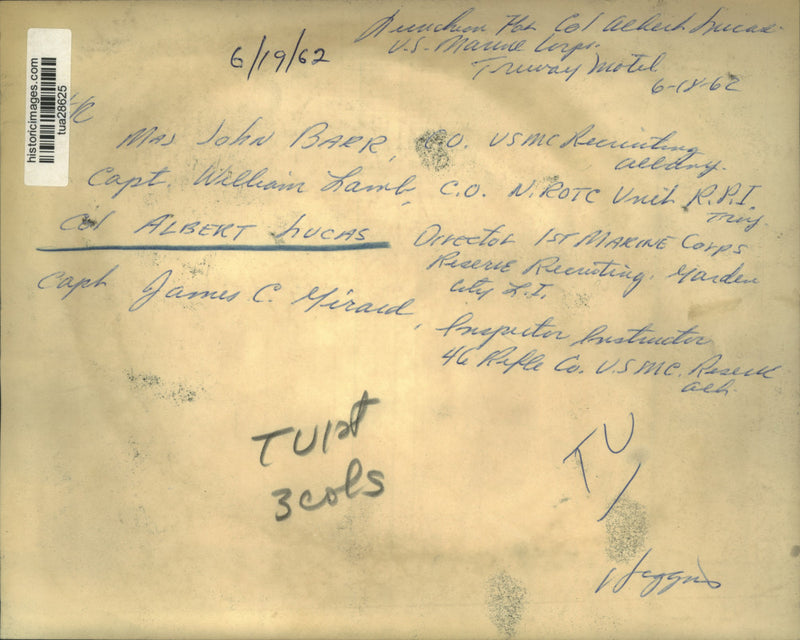 Luncheon For Col Albert Lucas
U.S. Marine Corps.
Truway Motel
6-18-62
6/19/62
historicimages.com
tua28625
Maj John BARR, C.O. USMC Recruiting
Albany.
Capt. William Lamb, C.O. N.ROTC Unit R.P.I.
Troy.
Col ALBERT LUCAS Director 1ST MARINE Corps
Reserve Recruiting, Garden
City L.I.
Capt James C. Girard, Inspector Instructor
46 Rifle Co. U.S.M.C. Reserve
Alb.
TU 1st
3 cols
TU
Higgins